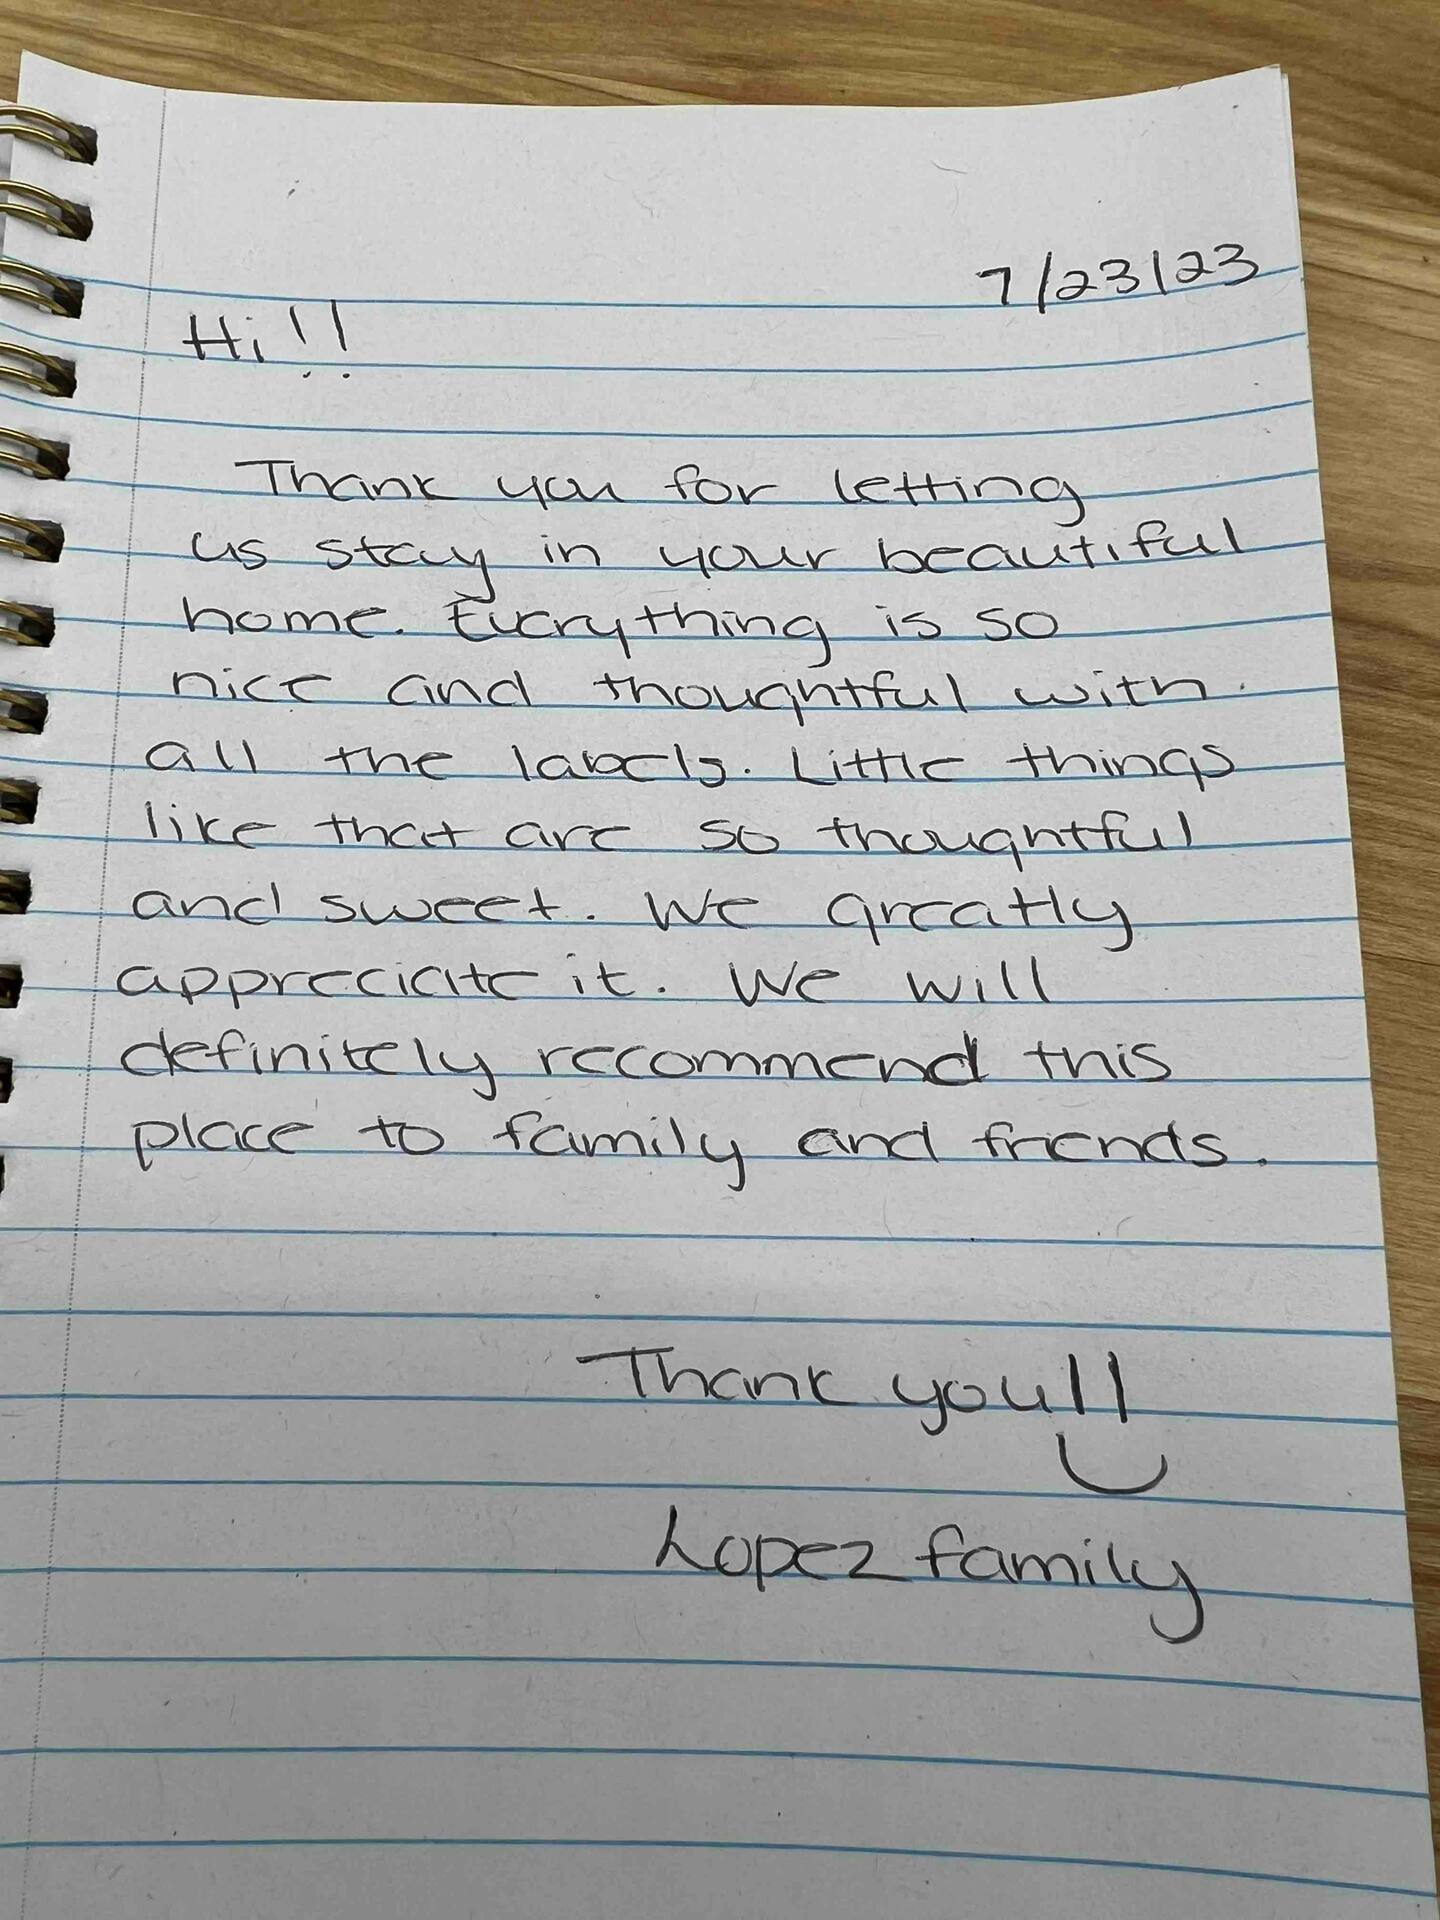 7/23/23
Hi!!
Thank you for letting
us stay in your beautiful
home. Everything is so
nice and thoughtful with
all the labels. Little things
like that are so thoughtful
and sweet. We greatly
appreciate it. We will
definitely recommend this
place to family and friends.
Thank you!!
Lopez family